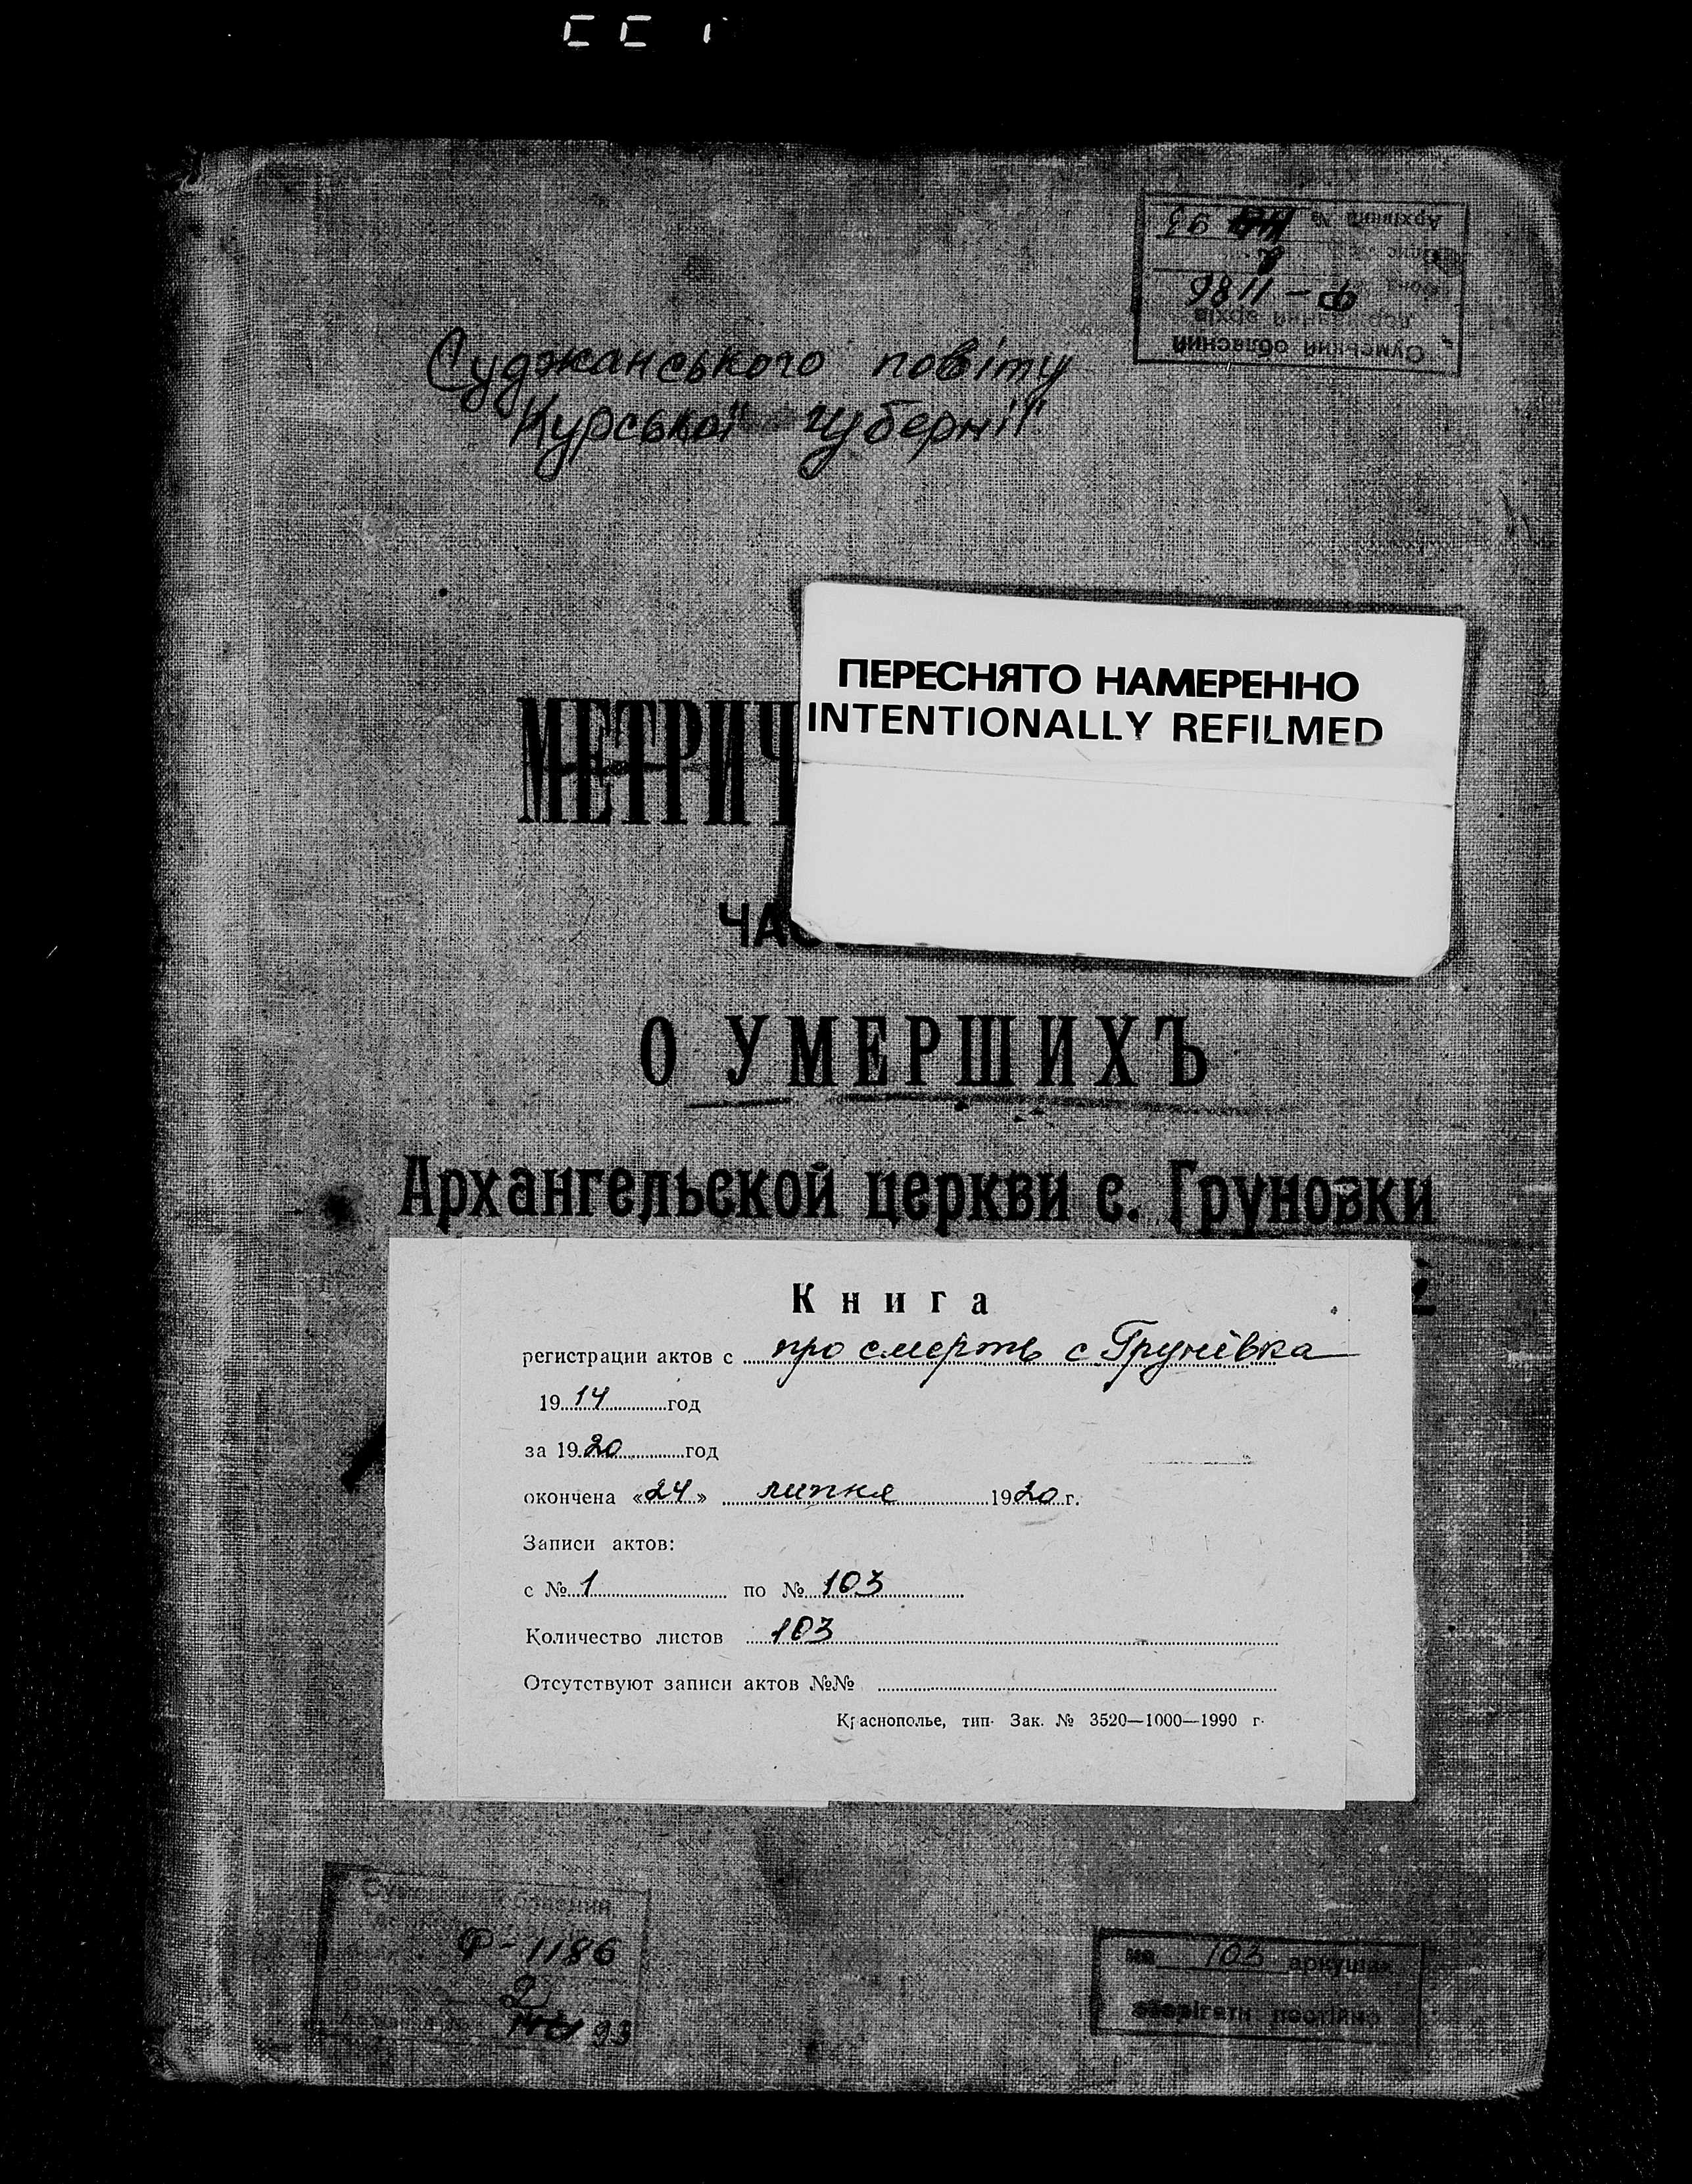 Архівний № 93
Опис 2
Фонд Ф-1186
державний архів
Сумський обласний
Суджанського повіту
Курської губернії
ПЕРЕСНЯТО НАМЕРЕННО
INTENTIONALLY REFILMED
МЕТРИЧ
ЧАС
О УМЕРШИХЪ
Архангельской церкви с. Груновки
Книга
регистрации актов с про смерть с Грунівка
1914 год
за 1920 год
окончена «24» липня 1920 г.
Записи актов:
с № 1 по № 103
Количество листов 103
Отсутствуют записи актов №№
Краснополье, тип. Зак. № 3520—1000—1990 г.
Сумський обласний
Ф-1186
2
93
на 103 аркушах
зберігати постійно